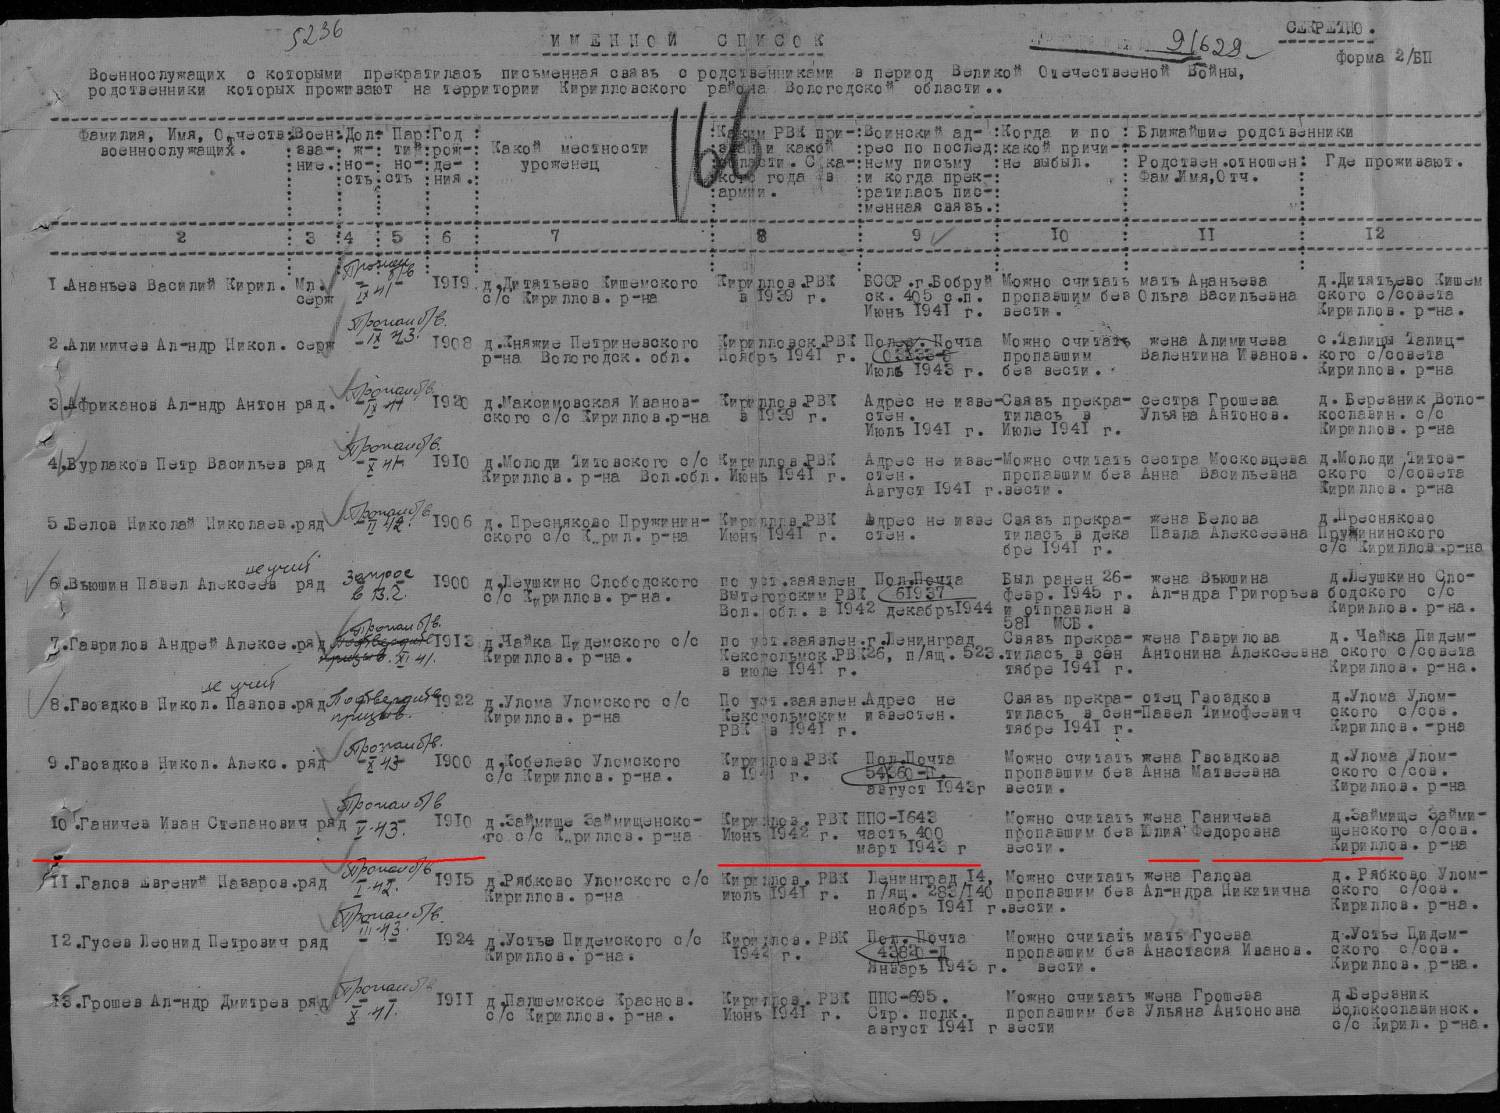 5236
СЕКРЕТНО.
ИМЕННОЙ СПИСОК
91629
форма 2/БП
Военнослужащих с которыми прекратилась письменная связь с родственниками в период Великой Отечественной Войны,
родственники которых проживают на территории Кирилловского района Вологодской области..
166
Фамилия, Имя, Отчеств. военнослужащих.
Воен. зва- ние.
Дол- ж- но- сть
Пар- тий- но- сть
Год рож- де- ния.
Какой местности уроженец
Каким РВК при- зван и какой области. С ка- кого года в армии.
Воинский ад- рес по послед- нему письму и когда прек- ратилась пис- менная связь.
Когда и по какой причи- не выбыл.
Ближайшие родственники
Родствен.отношен. Фам.Имя,Отч.
Где проживают.
2 3 4 5 6 7 8 9 10 11 12
Пропал б/в
1.Ананьев Василий Кирил. Мл. - - 1919 д.Дитятьево Кишемского Кириллов.РВК БССР.г.Бобруй Можно считать мать Ананьева д.Дитятьево Кишем
серж IX 41 с/с Кириллов. р-на в 1939 г. ск. 405 с.п. пропавшим без Ольга Васильевна ского с/совета
Июнь 1941 г. вести. Кириллов. р-на.
Пропал б/в.
IX 43.
2.Алимичев Ал-ндр Никол. серж - - 1908 д.Княжие Петриневского Кирилловск.РВК Полев. Почта Можно считать жена Алимичева с.Талицы Талиц-
р-на Вологодск. обл. Ноябрь 1941 г. пропавшим Валентина Иванов. кого с/совета
Июль 1943 г. без вести. Кириллов. р-на
Пропал б/в.
3.Африканов Ал-ндр Антон ряд. IX 41 1920 д.Максимовская Иванов- Кириллов.РВК Адрес не изве- Связь прекра- сестра Грошева д. Березник Воло-
ского с/с Кириллов.р-на в 1939 г. стен. тилась в Ульяна Антонов. кославин. с/с
Июль 1941 г. Июле 1941 г. Кириллов. р-на
Пропал б/в.
4.Бурлаков Петр Васильев ряд X 41 1910 д.Молоди Титовского с/с Кириллов.РВК Адрес не изве- Можно считать сестра Московцева д.Молоди Титов-
Кириллов. р-на Вол.обл. Июнь 1941 г. стен. пропавшим без Анна Васильевна ского с/совета
Август 1941 г. вести. Кириллов. р-на
Пропал б/в.
5.Белов Николай Николаев.ряд II 42 1906 д. Пресняково Пружинин- Кириллов.РВК Адрес не изве Связь прекра- жена Белова д.Пресняково
ского с/с Кирил. р-на Июнь 1941 г. стен. тилась в дека Павла Алексеевна Пружининского
бре 1941 г. с/с Кириллов.р-на
не учит
6.Вьюшин Павел Алексеев ряд Запрос 1900 д.Леушкино Слободского по уст.заявлен Пол.Почта Был ранен 26- жена Вьюшина д.Леушкино Сло-
в В.2. с/с Кириллов. р-на. Вытегорским РВК 61937 февр. 1945 г. Ал-ндра Григорьев бодского с/с
Вол. обл. в 1942 декабрь1944 и отправлен в Кириллов. р-на.
581 МСБ.
Пропал б/в.
7.Гаврилов Андрей Алексе.ряд 1913 д.Чайка Пидемского с/с по уст.заявлен. г.Ленинград Связь прекра- жена Гаврилова д. Чайка Пидем-
XI 41. Кириллов. р-на. Кексгольмск.РВК 26, п/ящ. 523. тилась в сен Антонина Алексеевна ского с/совета
в июле 1941 г. тябре 1941 г. Кириллов. р-на.
не учит
8.Гвоздков Никол. Павлов.ряд Подтвердить 1922 д.Улома Уломского с/с По уст.заявлен. Адрес не Связь прекра- отец Гвоздков д.Улома Улом-
призыв. Кириллов. р-на Кексгольмским известен. тилась в сен- Павел Тимофеевич ского с/сов.
РВК в 1941 г. тябре 1941 г. Кириллов. -рна
Пропал б/в.
9.Гвоздков Никол. Алекс. ряд X 43 1900 д.Кобелево Уломского Кириллов.РВК Пол.Почта Можно считать жена Гвоздкова д.Улома Улом-
с/с Кириллов. р-на. в 1941 г. пропавшим без Анна Матвеевна ского с/сов.
август 1943г вести. Кириллов. р-на
Пропал б/в
10.Ганичев Иван Степанович ряд V-43. 1910 д.Займище Займищенско- Кириллов. РВК ППС-1643 Можно считать жена Ганичева д.Займище Займи-
го с/с Кириллов. р-на Июнь 1942 г. часть 400 пропавшим без Юлия Федоровна щенского с/сов.
март 1943 г вести. Кириллов. р-на
Пропал б/в
11.Галов Евгений Назаров.ряд I-42. 1915 д.Рябково Уломского с/с Кириллов. РВК Ленинград 14, Можно считать жена Галова д. Рябково Улом-
Кириллов. р-на июль 1941 г. п/ящ. 283/140 пропавшим без Ал-ндра Никитична ского с/сов.
ноябрь 1941 г. вести. Кириллов. р-на.
Пропал б/в.
III 43.
12.Гусев Леонид Петрович ряд - - 1924 д.Устье Пидемского с/с Кириллов. РВК Пол. Почта Можно считать мать Гусева д.Устье Пидем-
Кириллов. р-на. 1942 г. 43820-Д пропавшим без Анастасия Иванов. ского с/сов.
Январь 1943 г. вести. Кириллов. р-на.
Пропал б/в
13.Грошев Ал-ндр Дмитрев ряд X 41. 1911 д.Палшемское Краснов. Кириллов. РВК ППС-695. Можно считать жена Грошева д.Березник
с/с Кириллов. р-на. Июнь 1941 г. Стр. полк. пропавшим без Ульяна Антоновна Волокославинск.
август 1941 г вести с/с Кирил. р-на.